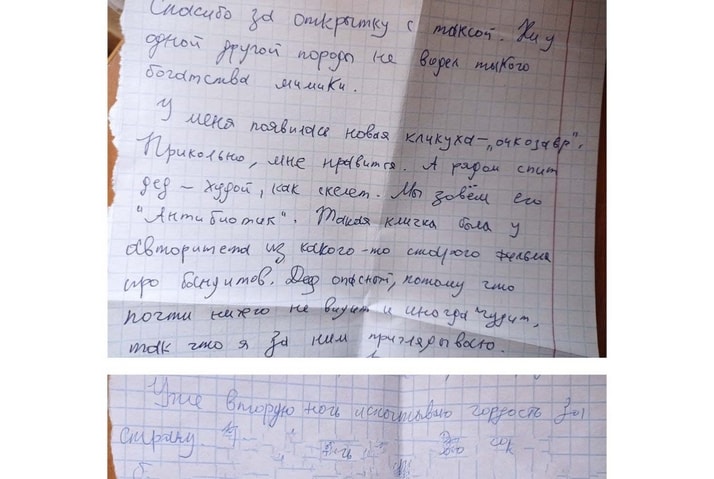 Спасибо за открытку с таксой. Ни у
одной другой породы не видел такого
богатства мимики.
У меня появилась новая кликуха – „очкозавр".
Прикольно, мне нравится. А рядом спит
дед – худой, как скелет. Мы зовём его
"Антибиотик". Такая кличка была у
авторитета из какого-то старого фильма
про бандитов. Дед опасный, потому что
почти ничего не видит и иногда чудит,
так что я за ним приглядываю.
Уже вторую ночь испытываю гордость за
страну